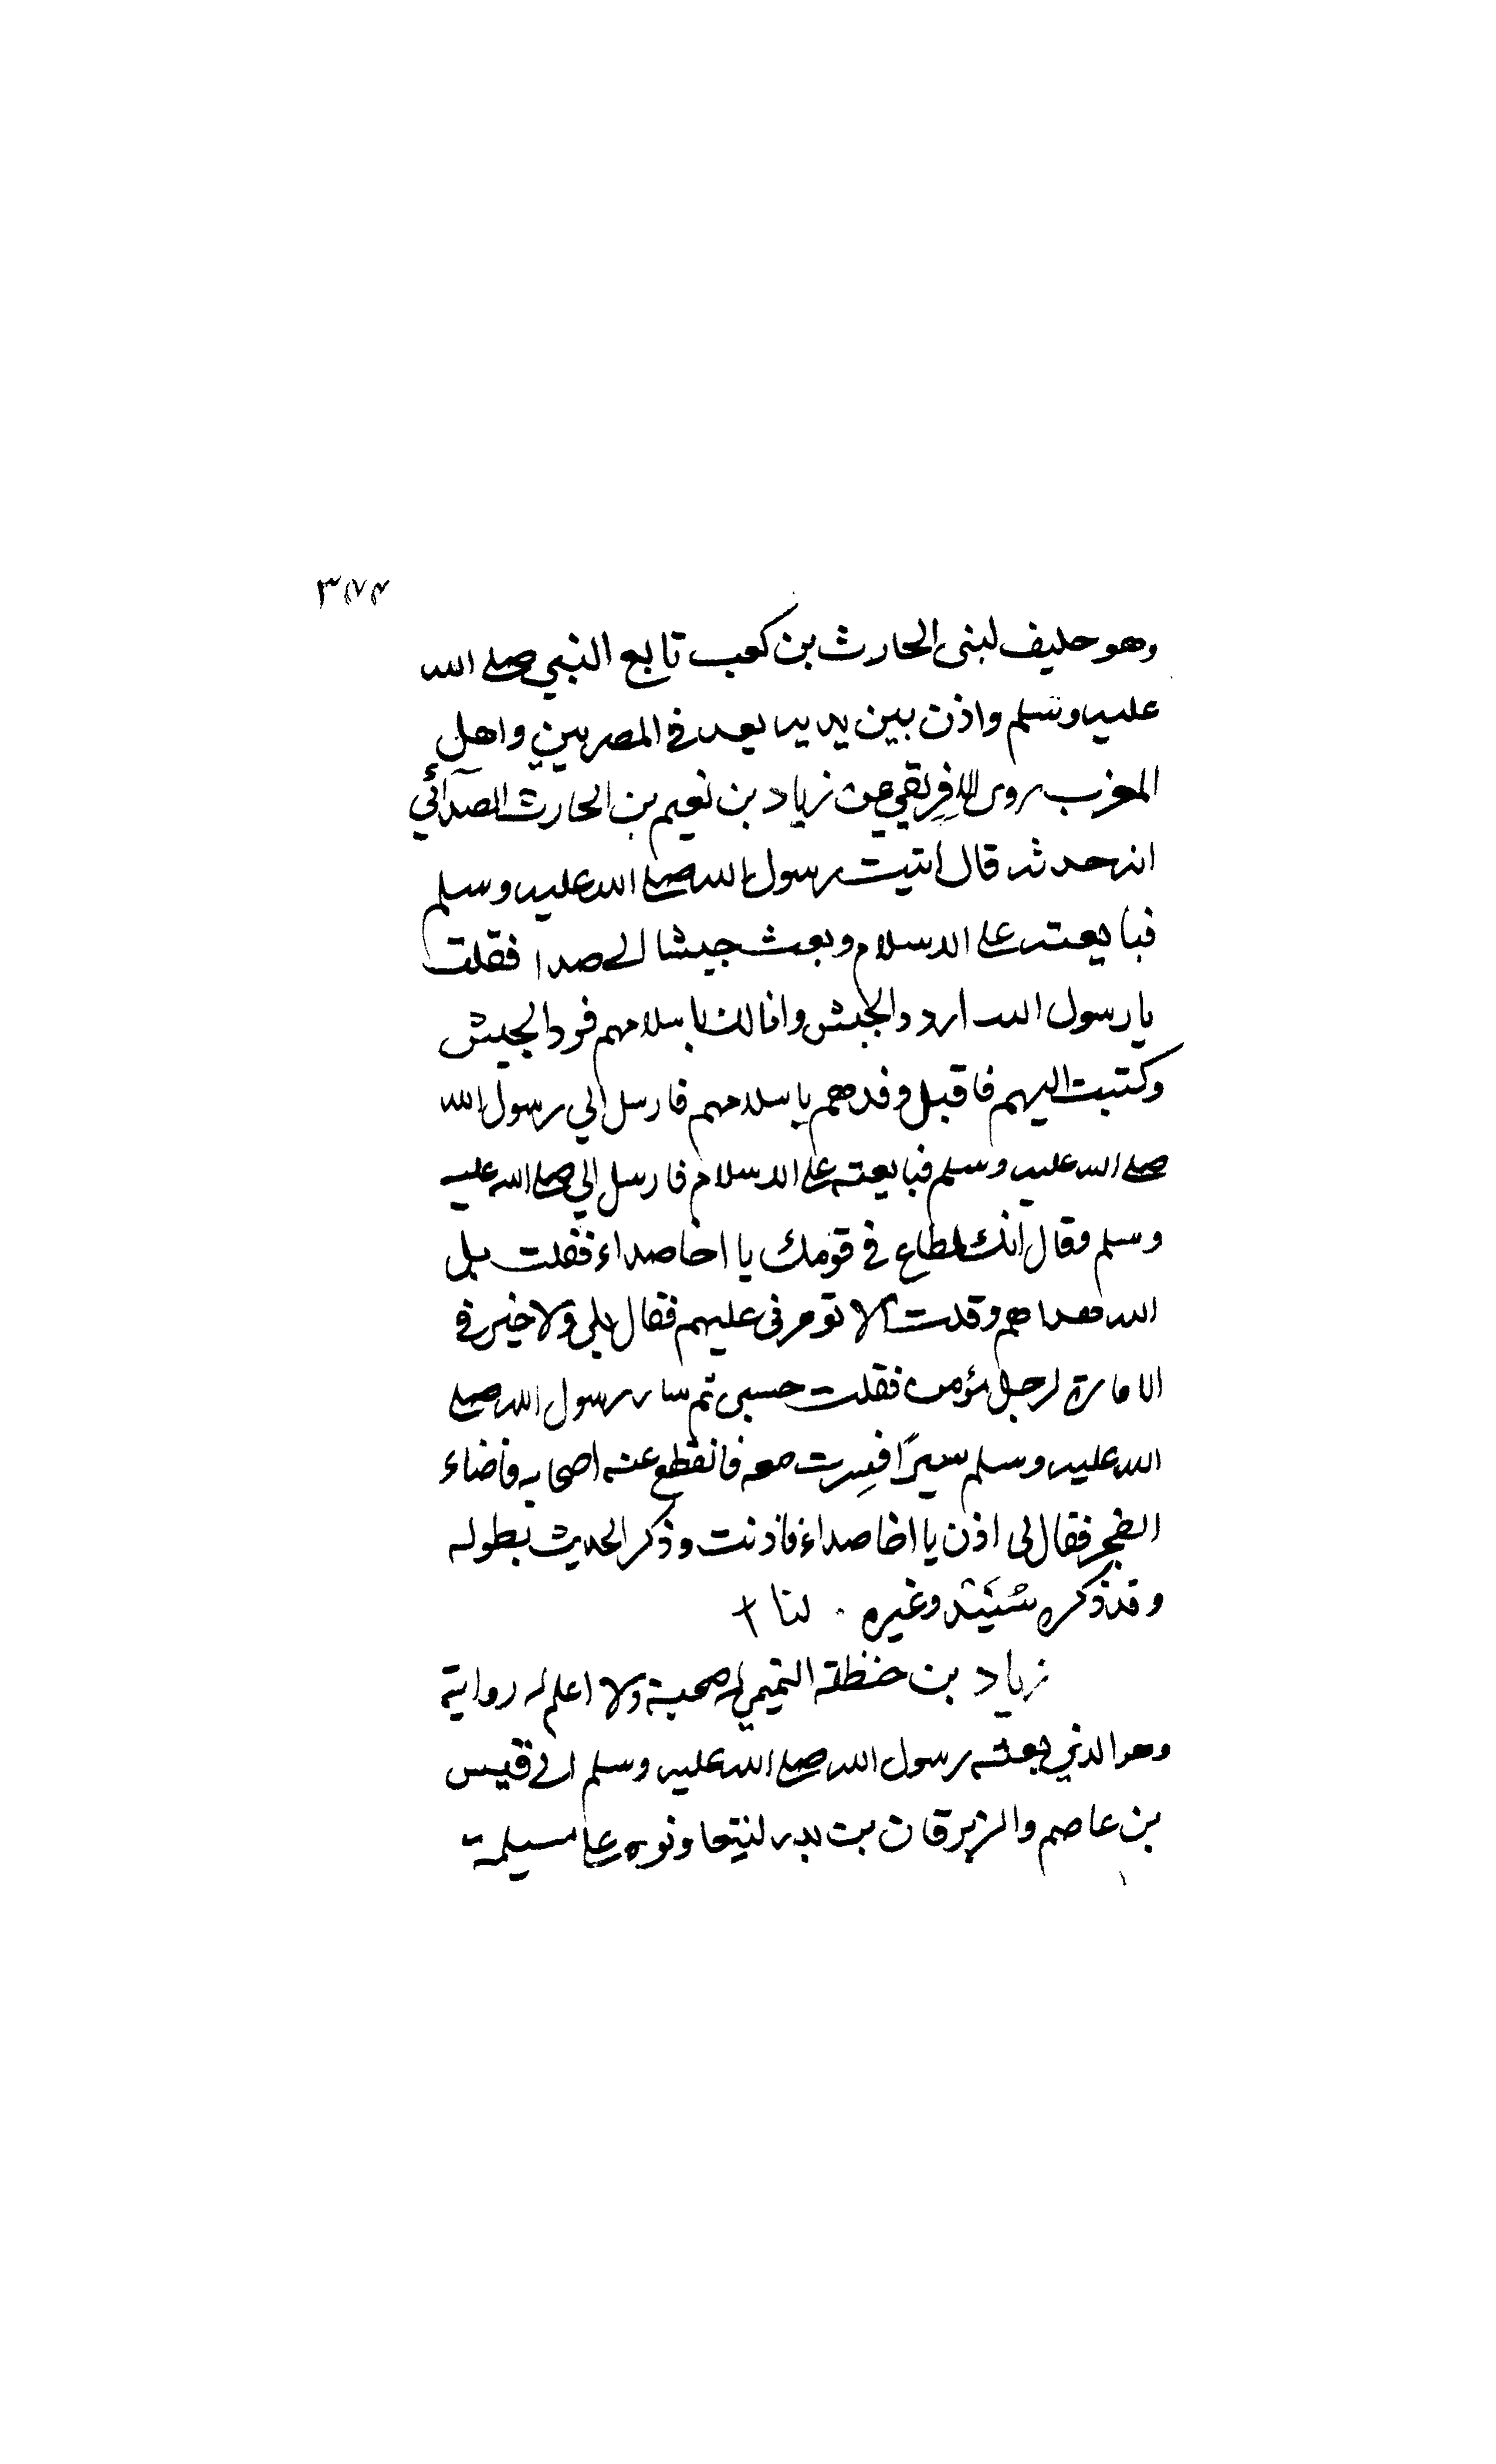 وهو حليف لبنى الحارث بن كعب تا بع النبي صلى الله
عليه وسلم واذن بين يديه يعد فى المصريين واهل
المغرب روى الافريقي عن زياد بن نعيم بن الحارث الصدآئي
انه حدثه قال اتيت رسول الله صلى الله عليه وسلم
فبايعته على الاسلام وبعث جيشا الى صدا فقلت
يا رسول الله اردد الجيش وانا لك باسلامهم فرد الجيش
وكتبت اليهم فاقبل وفدهم باسلامهم فارسل الي رسول الله
صلى الله عليه وسلم فبايعته على الاسلام فارسل الي صلى الله عليه
وسلم وقال انك لمطاع فى قومك يا اخا صداء فقلت بل
الله هداهم وقلت الا تومرنى عليهم فقال بلى ولا خير فى
الامارة لرجل مؤمن فقلت حسبى ثم سار رسول الله صلى
الله عليه وسلم سيرًا فسِرت معه فانقطع عنه اصحابه فاضاء
الفجر فقال لى اذن يا اخا صداء فاذنت وذكر الحديث بطوله
وقد ذكره سُنَيْد وغيره لنا
زياد بن حنظلة التميمي له صحبة ولا اعلم له رواية
وهو الذي بعثه رسول الله صلى الله عليه وسلم الى قيس
بن عاصم والزبرقان بن بدر ليتعاونوه على مسيلمة